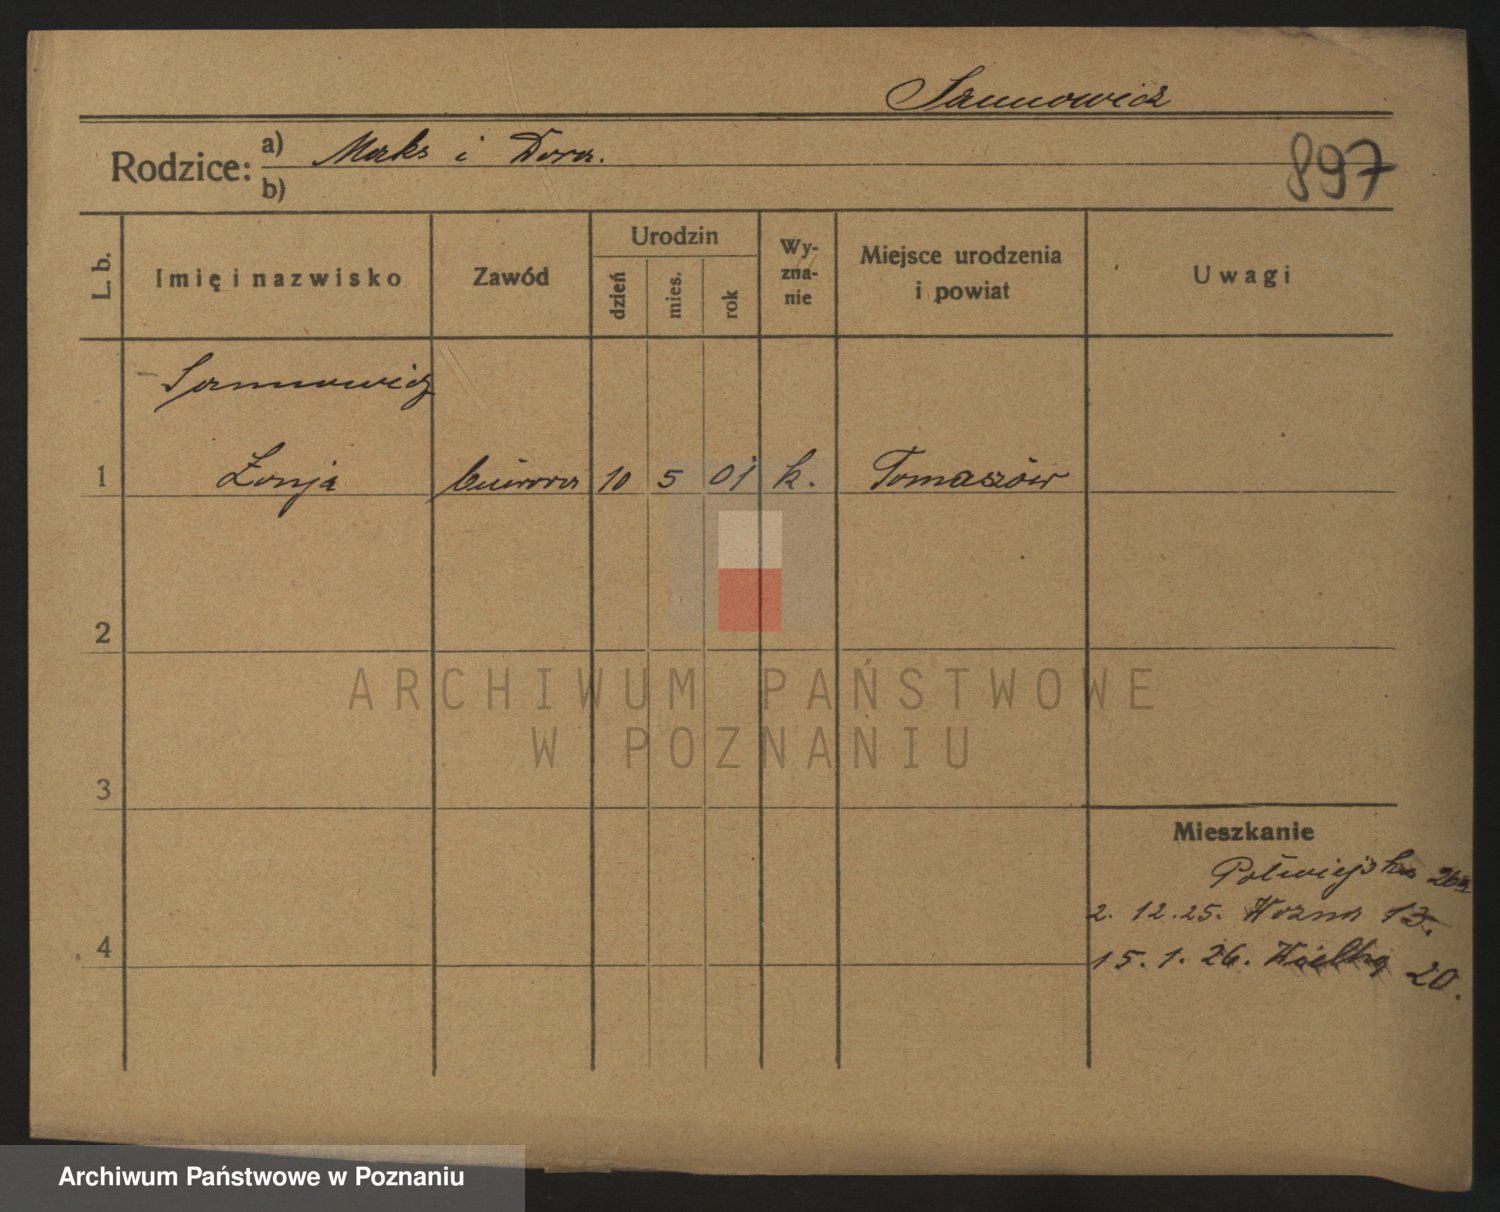 Sannowicz
Rodzice: a) Maks i Dora.
b)
897
L. b.
Imię i nazwisko
Zawód
Urodzin
dzień
mies.
rok
Wy-
zna-
nie
Miejsce urodzenia
i powiat
Uwagi
Sannowicz
1 Zonja biurowa 10 5 01 k. Tomaszów
2
3
4
Mieszkanie
Półwiejska 26a
2. 12. 25. Wozna 13.
15. 1. 26. Wielka 20.
ARCHIWUM PAŃSTWOWE
W POZNANIU
Archiwum Państwowe w Poznaniu